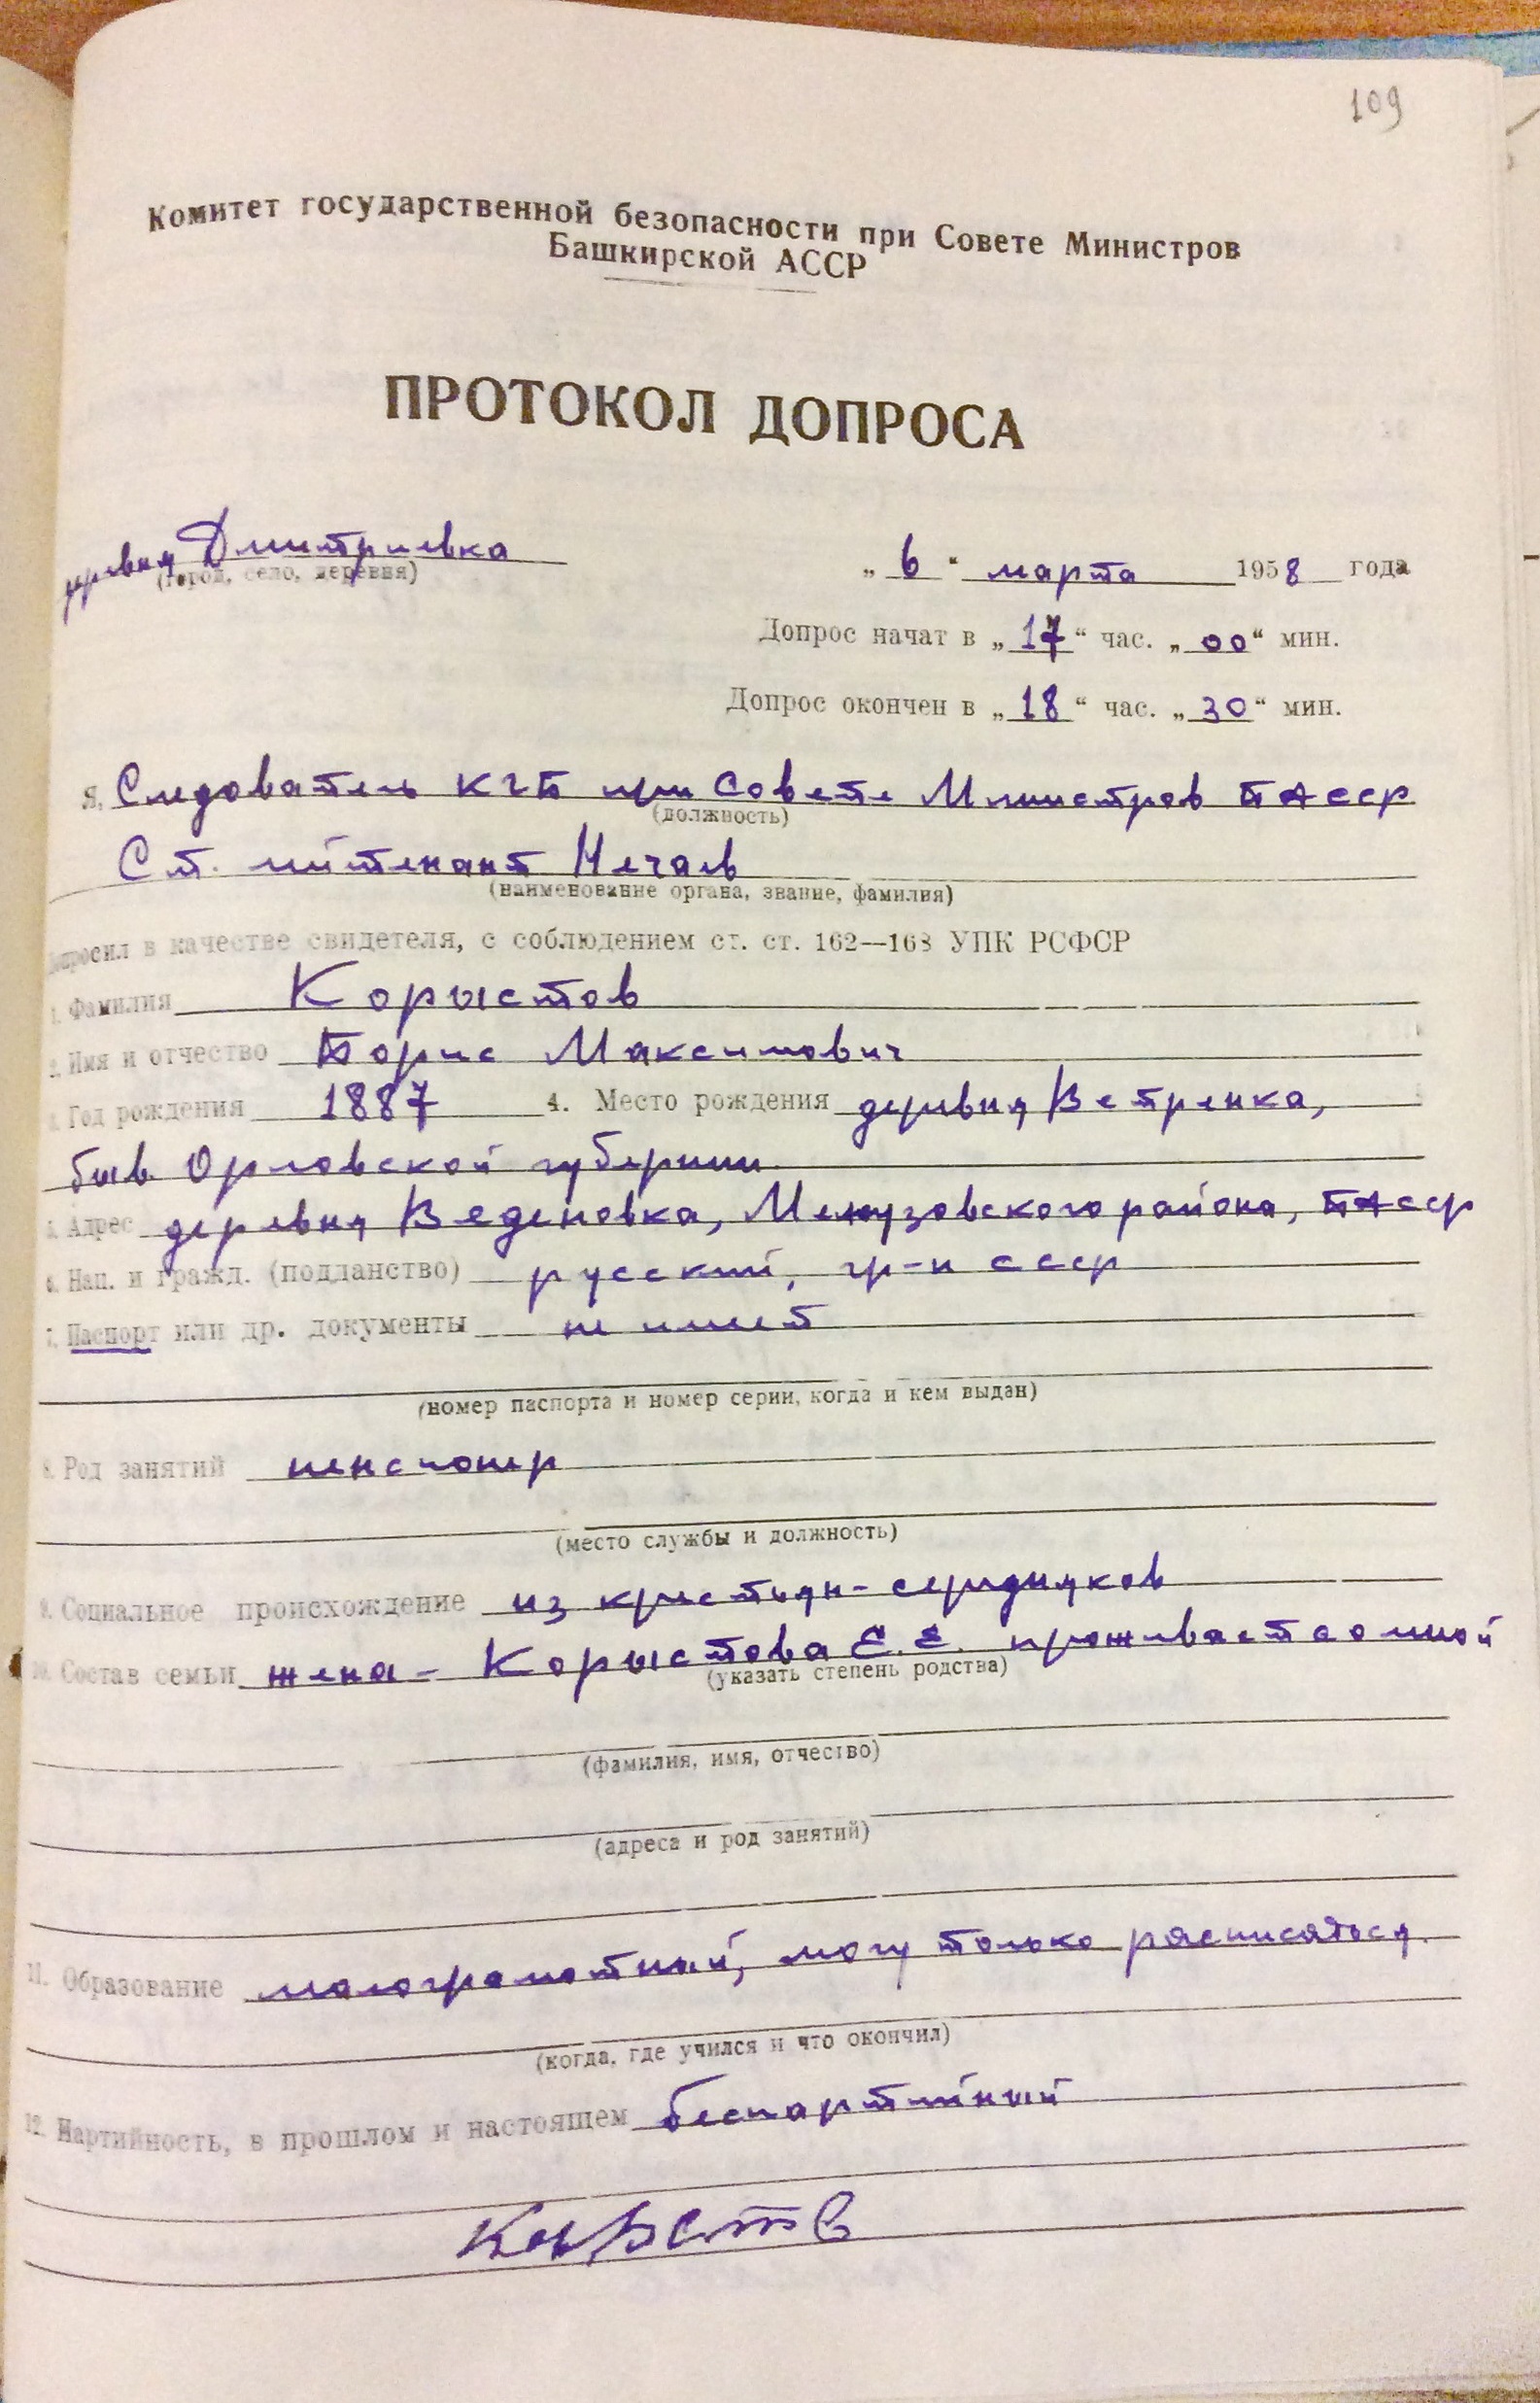 109
Комитет государственной безопасности при Совете Министров
Башкирской АССР
ПРОТОКОЛ ДОПРОСА
деревня Дмитриевка
(город, село, деревня)
„ 6 “ марта 1958 года
Допрос начат в „ 17 “ час. „ 00 “ мин.
Допрос окончен в „ 18 “ час. „ 30 “ мин.
Я, Следователь КГБ при Совете Министров БАССР
(должность)
Ст. лейтенант Нечаев
(наименование органа, звание, фамилия)
допросил в качестве свидетеля, с соблюдением ст. ст. 162—168 УПК РСФСР
1. Фамилия Корыстов
2. Имя и отчество Борис Максимович
3. Год рождения 1887 4. Место рождения деревня Ветренка,
быв. Орловской губернии
5. Адрес деревня Веденовка, Мелеузовского района, БАССР
6. Нац. и гражд. (подданство) русский, гр-н СССР
7. Паспорт или др. документы не имеет
(номер паспорта и номер серии, когда и кем выдан)
8. Род занятий пенсионер
(место службы и должность)
9. Социальное происхождение из крестьян-середняков
10. Состав семьи жена - Корыстова Е.Е. проживает со мной
(указать степень родства)
(фамилия, имя, отчество)
(адреса и род занятий)
11. Образование малограмотный, могу только расписаться.
(когда, где учился и что окончил)
12. Партийность, в прошлом и настоящем беспартийный